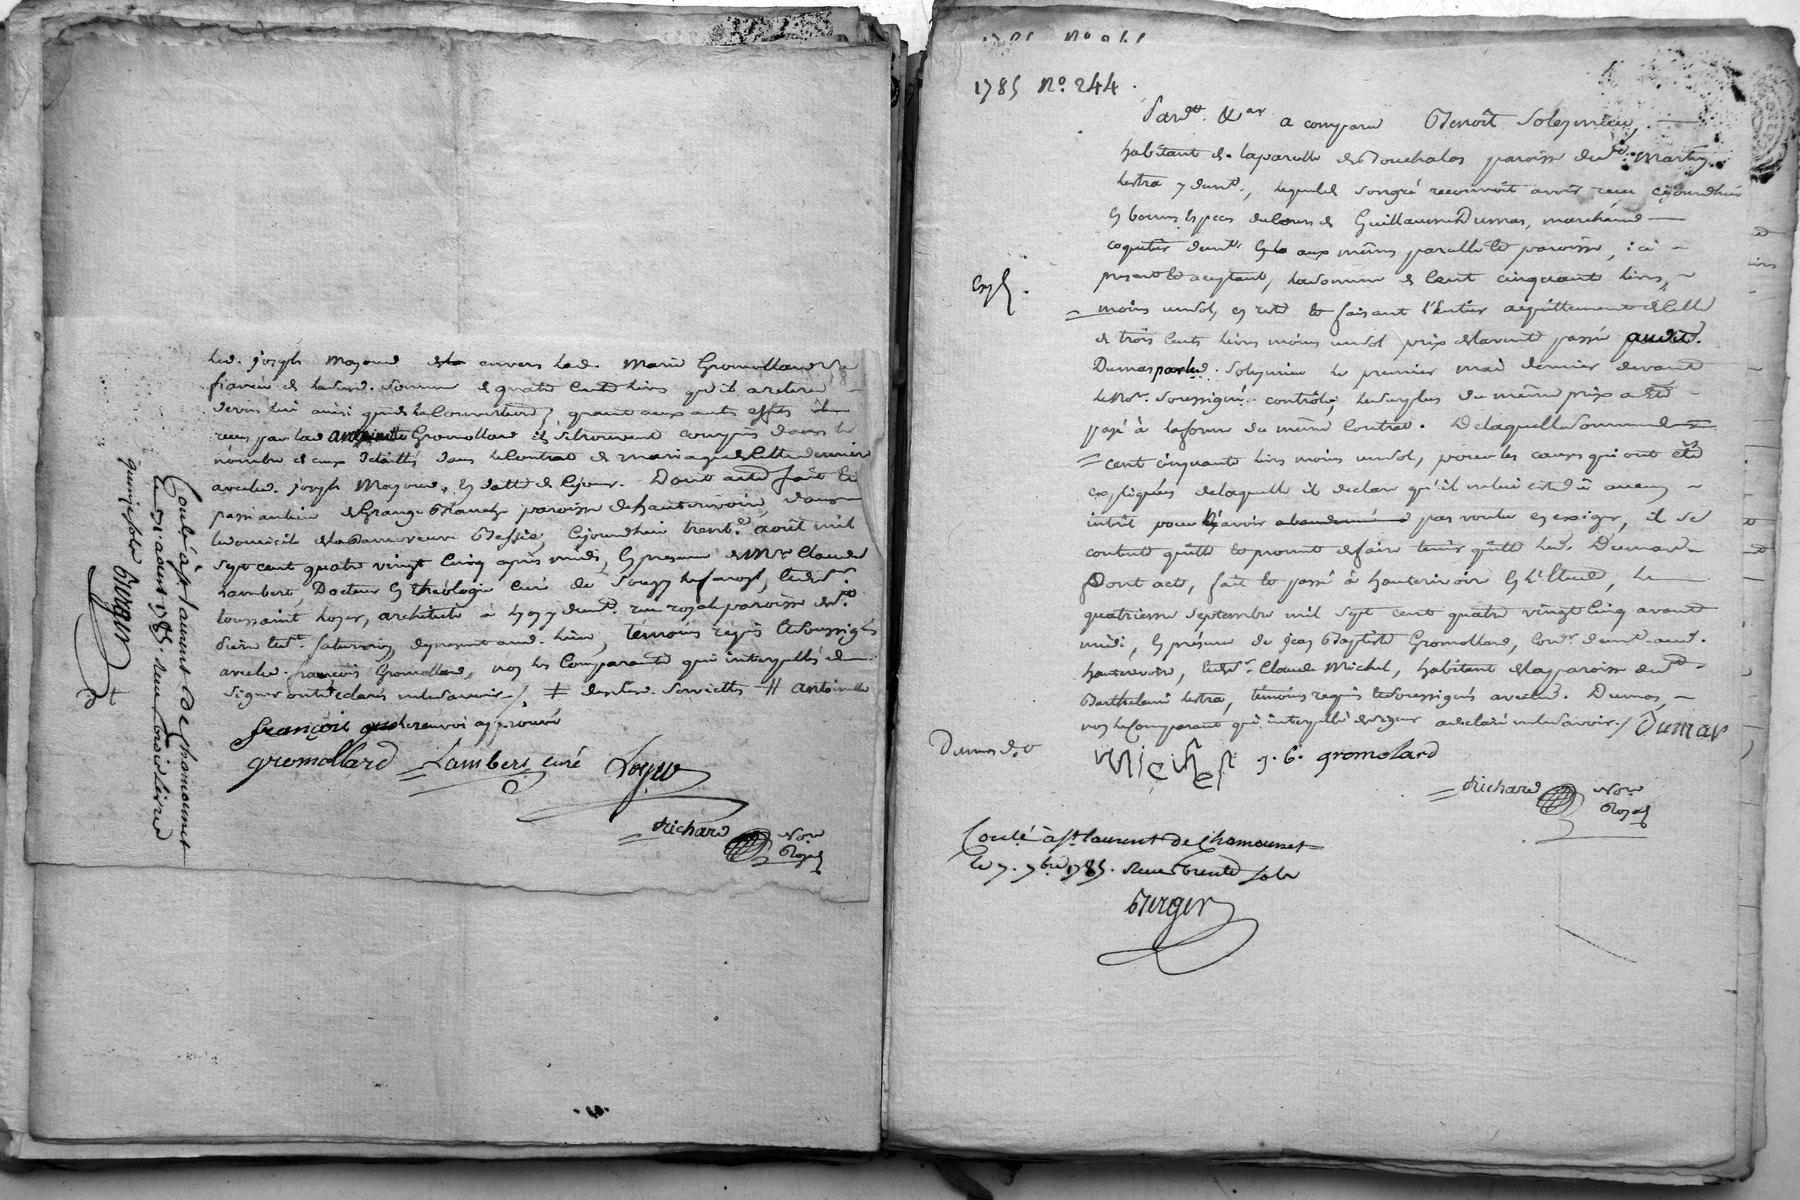 led. joseph Mayoud envers lad. Marie Gromollard Sa
fiancée de lad. Somme de quatre Cents Livres qu'il a retiré
devers lui ainsi que de la Couverture, quant aux auts. effets
recus par lad. antoinette Gromollard ils se trouvent compris dans le
nombre de ceux détaillés dans le Contrat de mariage de Cette dernière
avec led. joseph Mayoud, en datte de ce jour. Dont acte fait et
passé au lieu de Grange Blanche paroisse de hauterivoire, dans
le domicile de la Bessié, Cejourdhui trente août mil
sept cent quatre vingt Cinq après midi, En presence de Mre. Claude
Lambert Docteur En théologie Curé de Souzy L'argent, et de Sr.
toussaint Loyer, architecte à Lyon y demt. rue royale paroisse de St.
Pierre et St. Saturnin, de present aud. lieu, témoins requis et soussignés
avec led. françois Gromollard, non les Comparants qui interpellés de
signer ont déclaré ne le Savoir ./ ‡ Serviettes # antoinette
françois renvoi approuvé
gromollard Lambert curé Loyer
Richard Nore. Royal
Conlé à St laurent de Chamounet
Le 31 aoust 1785. Reçu trois Livres
quinze sols Berger
1785 No. 244.
Pardt. &ar a comparu Benoît Soleymieu,
habitant de la parcelle de Bouchalas paroisse de St. Martin
Lestra y demt., lequel de Son gré reconnoît avoir reçu Cejourdhui
En bonnes Especes du Cours de Guillaume Dumas, marchand
coquetier demt. aux mêmes parcelle et paroisse, ici
present et acceptant, la Somme de Cent cinquante Livres,
moins un Sol, en reste et faisant l'Entier acquittement de Celle
de trois Cents Livres moins un Sol prix de la vente passée audit.
Dumas par led. Soleymieu le premier mai dernier devant
le Nore. Soussigné contrôlé, le Surplus du même prix a Eté
payé à la forme du même Contrat. De laquelle Somme de
cent cinquante Livres moins un Sol, pour les causes qui ont été
expliquées de laquelle il declare qu'il ne lui est dû aucun
intérêt pour n'avoir pas voulu en exiger, il se
contente quitte et promet de faire tenir quitte led. Dumas.
Dont acte, fait et passé à hauterivoire En l'Etude, le
quatrieme Septembre mil Sept cent quatre vingt Cinq avant
midi, En présence de jean Baptiste Gromollard, demt. aud.
hauterivoire, et de Sr. Claude Michel, habitant de la paroisse de St.
Barthelemi Lestra, témoins requis et soussignés avec led. Dumas,
non le Comparant qui interpellé de signer a declaré ne le Savoir ./ Dumas
Dumas d. v Michel j. b. gromolard
Richard Nore. Royal
Conlé. à St. laurent de Chamounet
le 7. 7bre 1785. Reçu trente sols
Berger